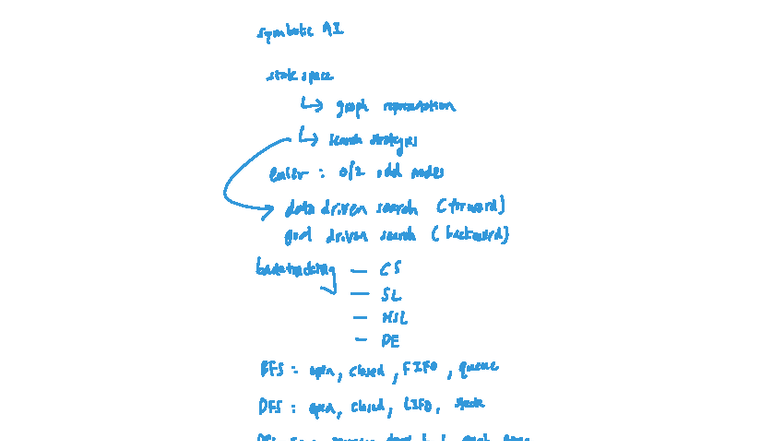 symbolic AI
state space
↳ graph representation
↳ search strategies
euler : 0/2 odd nodes
data driven search (forward)
goal driven search (backward)
backtracking — CS
— SL
— NSL
— DE
BFS : open, closed, FIFO, queue
DFS : open, closed, LIFO, stack